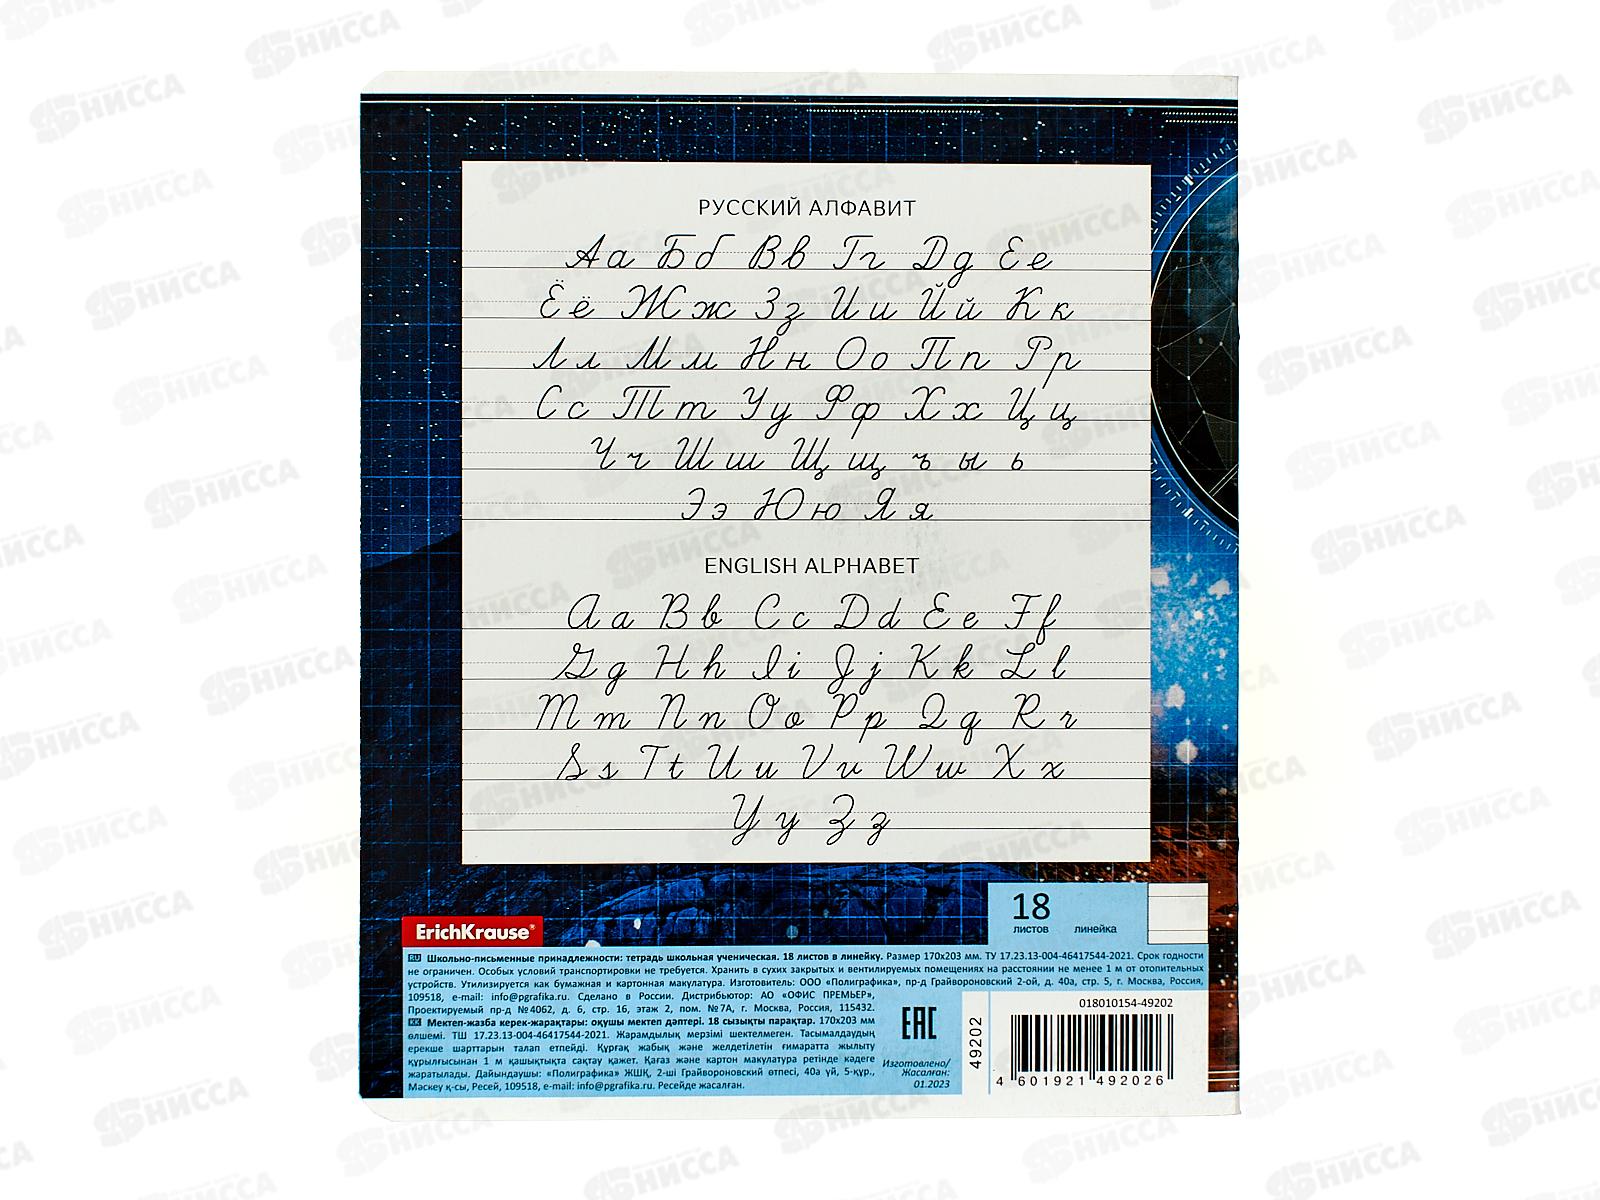 РУССКИЙ АЛФАВИТ
Аа Бб Вв Гг Дд Ее
Ёё Жж Зз Ии Йй Кк
Лл Мм Нн Оо Пп Рр
Сс Тт Уу Фф Хх Цц
Чч Шш Щщ ъ ы ь
Ээ Юю Яя
ENGLISH ALPHABET
Aa Bb Cc Dd Ee Ff
Gg Hh Ii Jj Kk Ll
Mm Nn Oo Pp Qq Rr
Ss Tt Uu Vv Ww Xx
Yy Zz
18
листов линейка
ErichKrause®
RU Школьно-письменные принадлежности: тетрадь школьная ученическая. 18 листов в линейку. Размер 170х203 мм. ТУ 17.23.13-004-46417544-2021. Срок годности
не ограничен. Особых условий транспортировки не требуется. Хранить в сухих закрытых и вентилируемых помещениях на расстоянии не менее 1 м от отопительных
устройств. Утилизируется как бумажная и картонная макулатура. Изготовитель: ООО «Полиграфика», пр-д Грайвороновский 2-ой, д. 40а, стр. 5, г. Москва, Россия,
109518, e-mail: info@pgrafika.ru. Сделано в России. Дистрибьютор: АО «ОФИС ПРЕМЬЕР»,
Проектируемый пр-д №4062, д. 6, стр. 16, этаж 2, пом. №7А, г. Москва, Россия, 115432.
KK Мектеп-жазба керек-жарақтары: оқушы мектеп дәптері. 18 сызықты парақтар. 170х203 мм
өлшемі. ТШ 17.23.13-004-46417544-2021. Жарамдылық мерзімі шектелмеген. Тасымалдаудың
ерекше шарттарын талап етпейді. Құрғақ жабық және желдетілетін ғимаратта жылыту
құрылғысынан 1 м қашықтықта сақтау қажет. Қағаз және картон макулатура ретінде кәдеге
жаратылады. Дайындаушы: «Полиграфика» ЖШҚ, 2-ші Грайвороновский өтпесі, 40а үй, 5-құр.,
Мәскеу қ-сы, Ресей, 109518, e-mail: info@pgrafika.ru. Ресейде жасалған.
EAC
Изготовлено/
Жасалған:
01.2023
49202
018010154-49202
4 601921 492026
НИССА